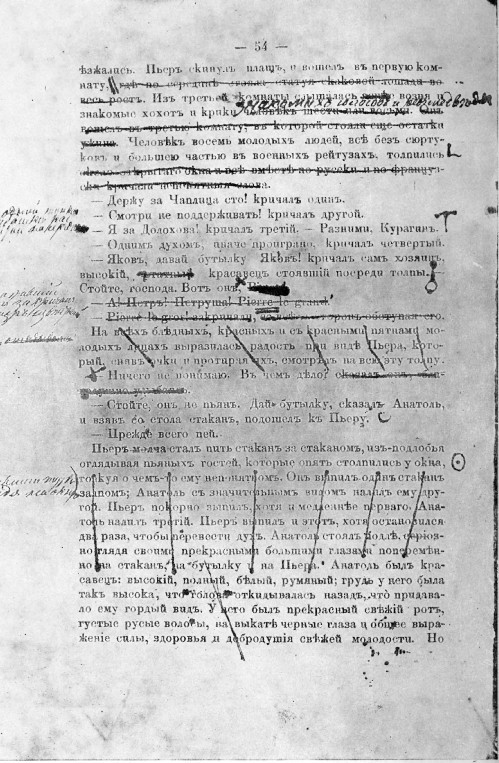 — 54 —
ѣзжались. Пьеръ скинулъ плащъ, и вошелъ въ первую ком-
нату, гдѣ по срединѣ стояла статуя скаковой лошади во
весь ростъ. Изъ третьей комнаты слышалась возня и
знакомые хохотъ и крики
вошелъ въ третью комнату, въ которой стояли еще остатки
ужина. Человѣкъ восемь молодыхъ людей, всѣ безъ сюрту-
ковъ и большею частью въ военныхъ рейтузахъ, толпились
окна и всѣ вмѣстѣ по русски и по француз-
ски кричали
— Держу за Чаплица сто! кричалъ одинъ.
— Смотри не поддерживать! кричалъ другой.
— Я за Долохова! кричалъ третій. — Разними, Курагинъ.
— Однимъ духомъ, иначе проиграно, кричалъ четвертый.
— Яковъ, давай бутылку Яковъ! кричалъ самъ хозяинъ,
высокій, красавецъ стоявшій посреди толпы.
Стойте, господа. Вотъ онъ,
— А! Петръ! Петруша! Pierre le grand.
— Pierre le gros! закричали обступая его.
На всѣхъ блѣдныхъ, красныхъ и съ красными пятнами мо-
лодыхъ лицахъ выразилась радость при видѣ Пьера, кото-
рый, снявъ очки и протирая ихъ, смотрѣлъ на всю эту толпу.
— Ничего не понимаю. Въ чемъ дѣло? сказалъ онъ
— Стойте, онъ не пьянъ. Дай бутылку, сказалъ Анатоль,
и взявъ со стола стаканъ, подошелъ къ Пьеру.
— Прежде всего пей.
Пьеръ молча сталъ пить стаканъ за стаканомъ, изъ-подлобья
оглядывая пьяныхъ гостей, которые опять столпились у окна,
толкуя о чемъ-то ему непонятномъ. Онъ выпилъ одинъ стаканъ
залпомъ; Анатоль съ значительнымъ видомъ налилъ ему дру-
гой. Пьеръ покорно выпилъ, хотя и медленнѣе перваго. Ана-
толь налилъ третій. Пьеръ выпилъ и этотъ, хотя остановился
два раза, чтобы перевести духъ. Анатоль стоялъ подлѣ, серіоз-
но глядя своими прекрасными большими глазами поперемѣн-
но на стаканъ, на бутылку и на Пьера. Анатоль былъ кра-
савецъ: высокій, полный, бѣлый, румяный; грудь у него была
такъ высока, что голова откидывалась назадъ, что придава-
ло ему гордый видъ. У него былъ прекрасный свѣжій ротъ,
густые русые волосы, на выкатѣ черные глаза и общее выра-
женіе силы, здоровья и добродушія свѣжей молодости. Но